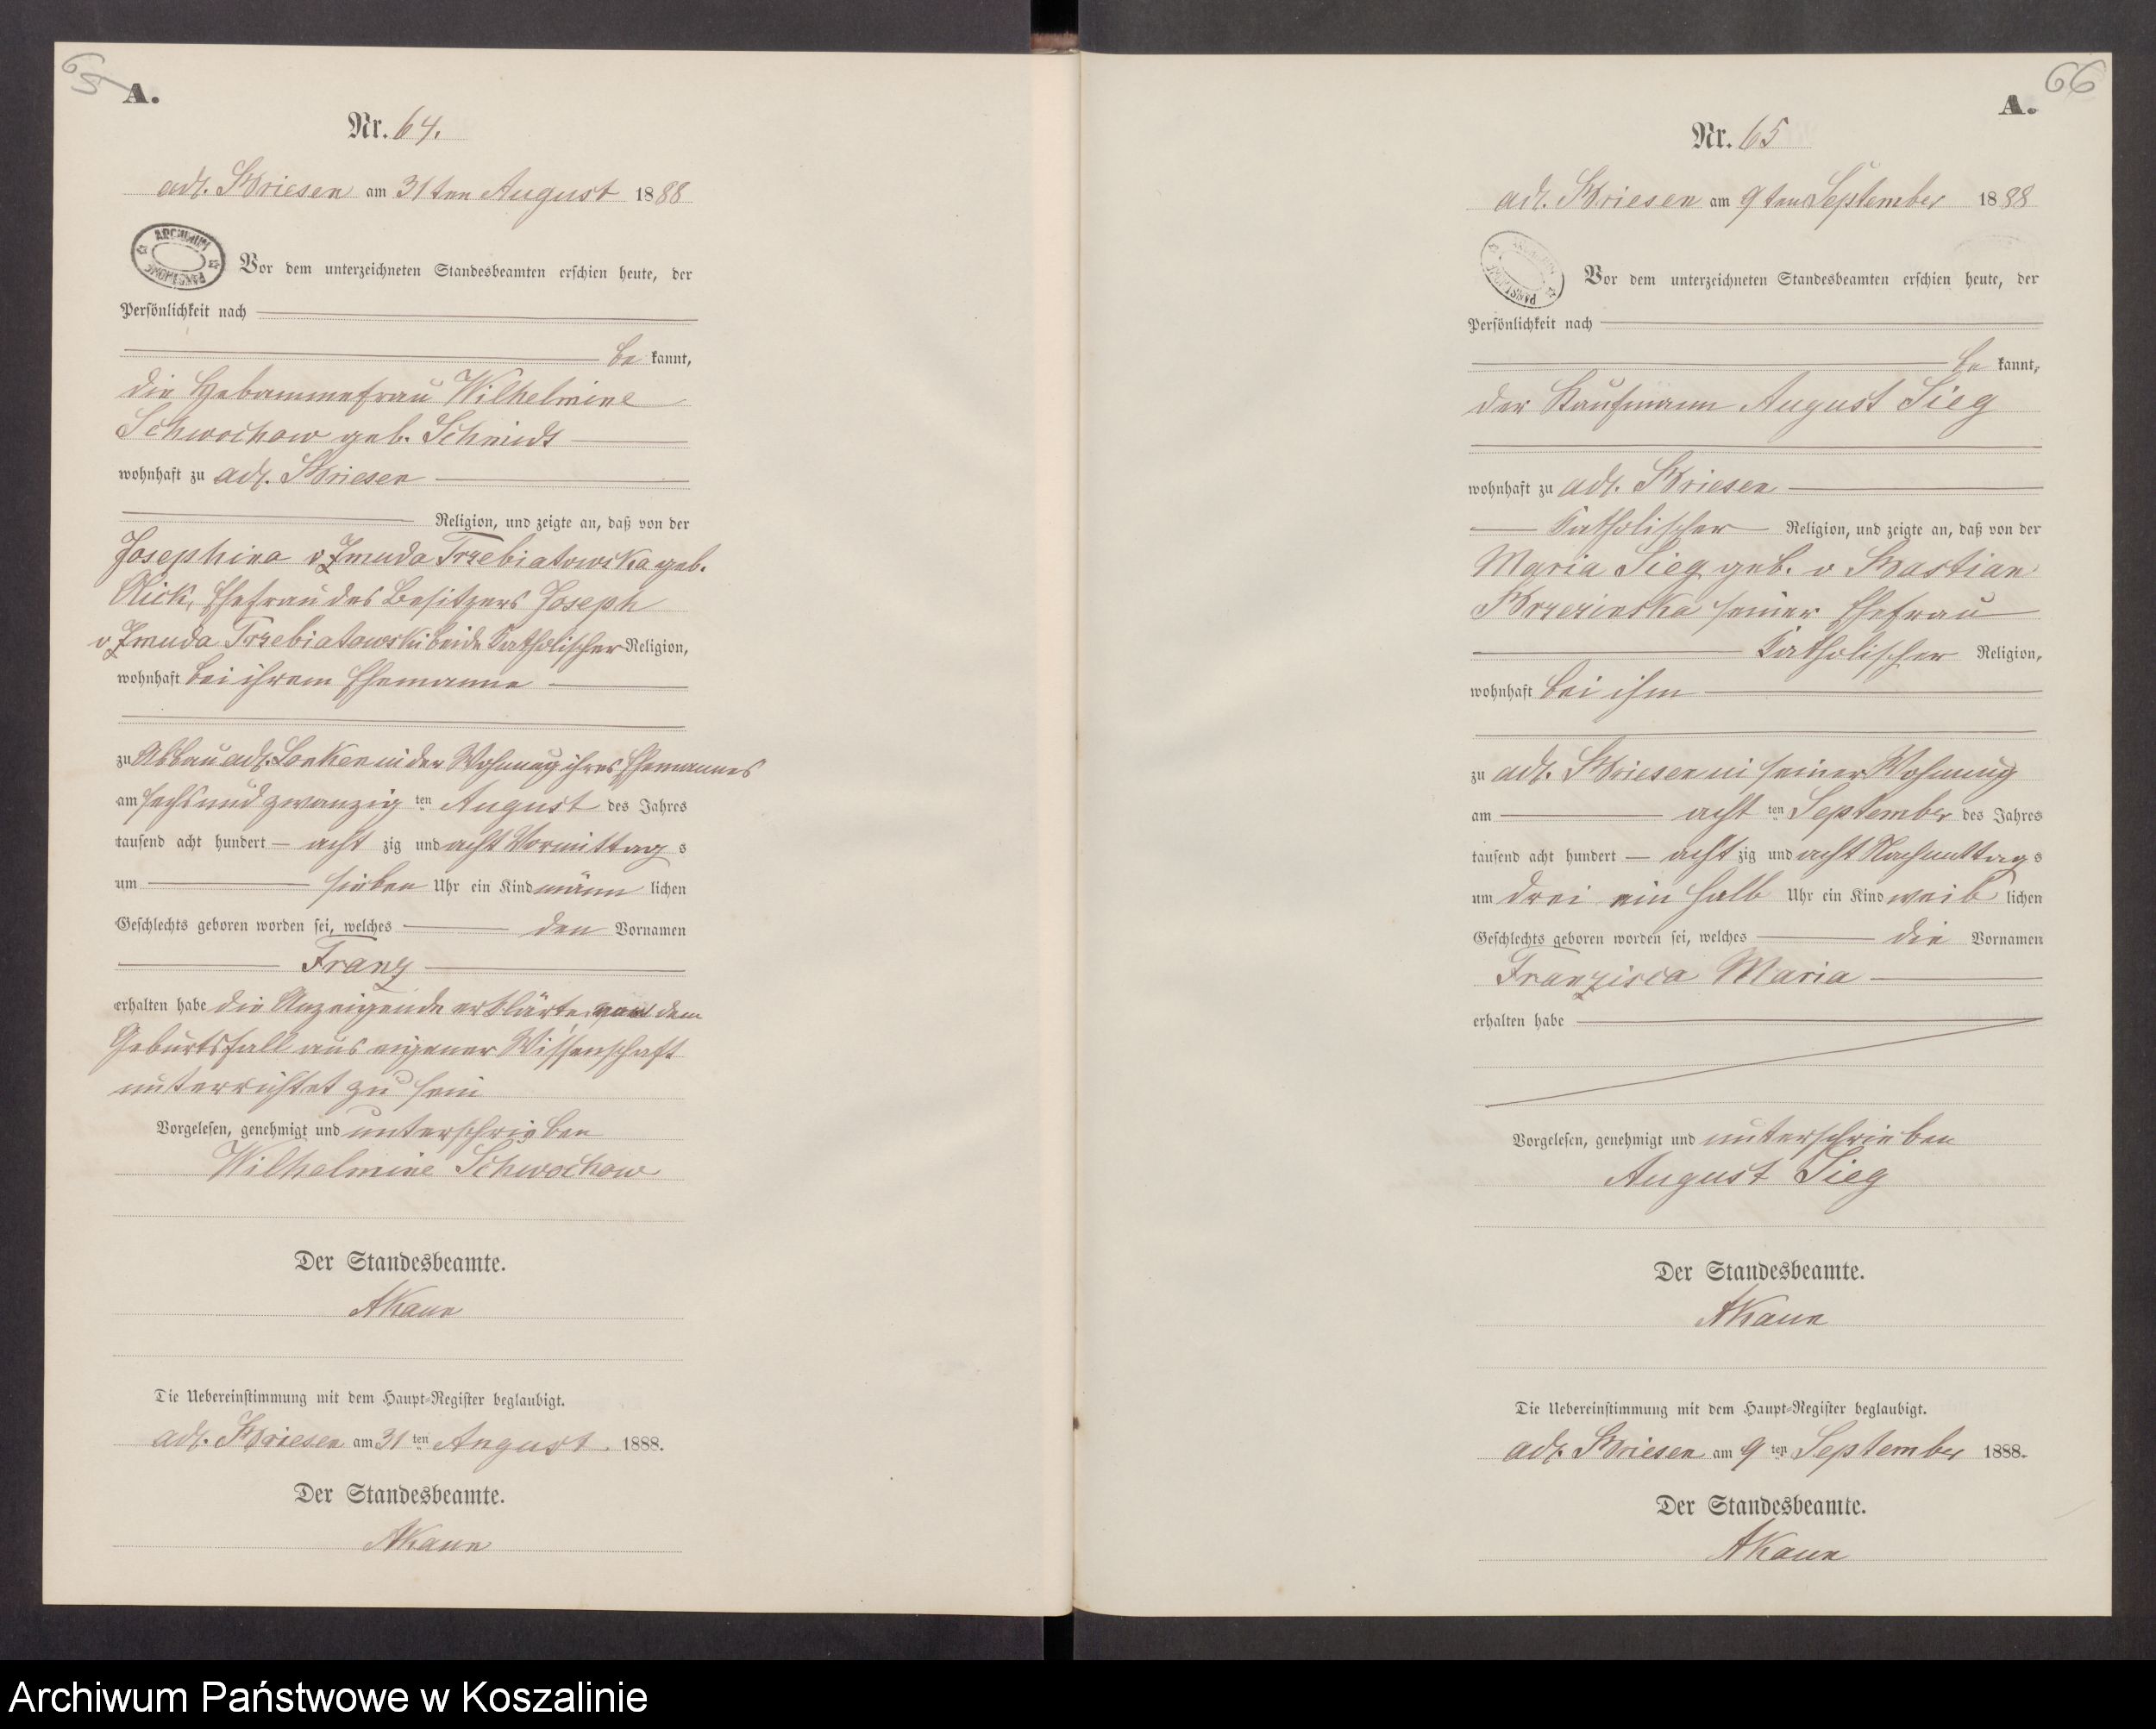 65
A.
Nr. 64.
adl. Briesen am 31ten August 1888
ARCHIWUM PAŃSTWOWE
Vor dem unterzeichneten Standesbeamten erschien heute, der
Persönlichkeit nach
be kannt,
die Hebammefrau Wilhelmine
Schwochow geb. Schmidt
wohnhaft zu adl. Briesen
Religion, und zeigte an, daß von der
Josephina v Zmuda Trzebiatowska geb.
Rick, Ehefrau des Besitzers Joseph
v Zmuda Trzebiatowski beide Katholischer Religion,
wohnhaft bei ihrem Ehemanne
zu Abbau adl. Lonken in der Wohnung ihres Ehemannes
am sechsundzwanzig ten August des Jahres
tausend acht hundert acht zig und acht Vormittag s
um sieben Uhr ein Kind männ lichen
Geschlechts geboren worden sei, welches den Vornamen
Franz
erhalten habe die Anzeigende erklärte, von dem
Geburtsfall aus eigener Wissenschaft
unterrichtet zu sein
Vorgelesen, genehmigt und unterschrieben
Wilhelmine Schwochow
Der Standesbeamte.
AKaun
Die Uebereinstimmung mit dem Haupt-Register beglaubigt.
adl. Briesen am 31 ten August. 1888.
Der Standesbeamte.
AKaun
66
A.
Nr. 65
adl. Briesen am 9ten September 1888
ARCHIWUM PAŃSTWOWE
Vor dem unterzeichneten Standesbeamten erschien heute, der
Persönlichkeit nach
be kannt,
der Kaufmann August Sieg
wohnhaft zu adl. Briesen
Katholischer Religion, und zeigte an, daß von der
Maria Sieg geb. v Bastian
Brzezinska seiner Ehefrau
Katholischer Religion,
wohnhaft bei ihm
zu adl. Briesen in seiner Wohnung
am acht ten September des Jahres
tausend acht hundert acht zig und acht Nachmittag s
um drei ein halb Uhr ein Kind weib lichen
Geschlechts geboren worden sei, welches die Vornamen
Franzisca Maria
erhalten habe
Vorgelesen, genehmigt und unterschrieben
August Sieg
Der Standesbeamte.
AKaun
Die Uebereinstimmung mit dem Haupt-Register beglaubigt.
adl. Briesen am 9 ten September 1888.
Der Standesbeamte.
AKaun
Archiwum Państwowe w Koszalinie